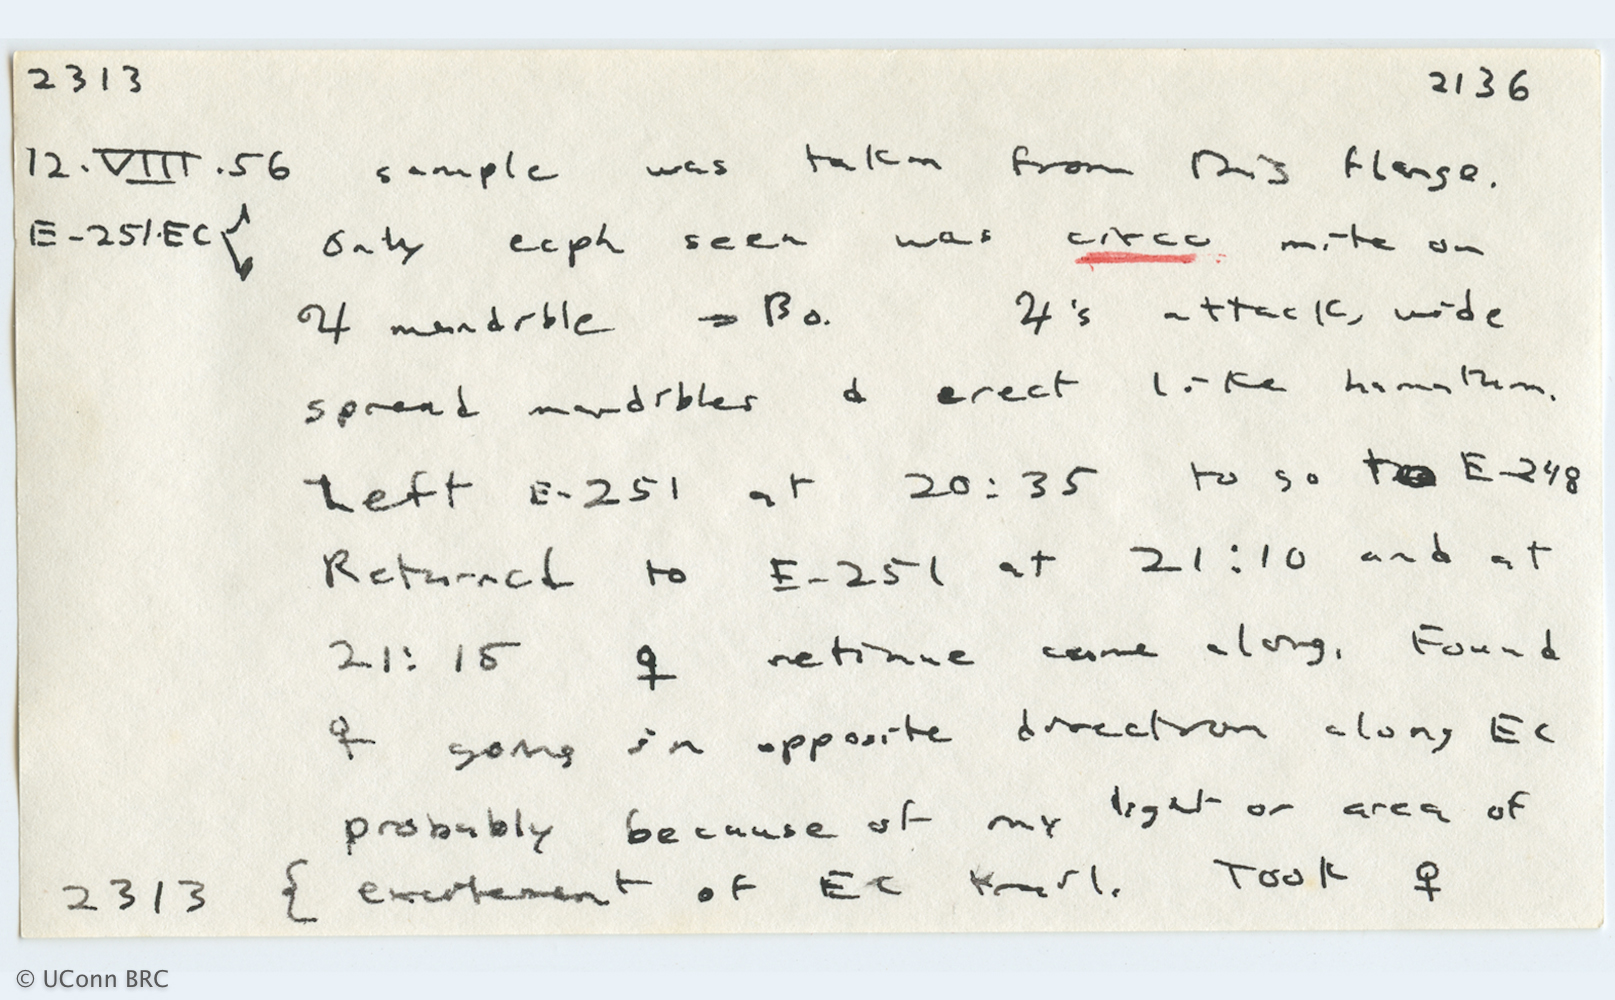 2313 2136
12.VIII.56 sample was taken from this flange.
E-251.EC { Only ecph seen was circo mite on
♃ mandible → Bo. ♃'s attack, wide
spread mandibles & erect like hamatum.
Left E-251 at 20:35 to go to E-248
Returned to E-251 at 21:10 and at
21:15 ♀ retinue came along. Found
♀ going in opposite direction along EC
probably because of my light or area of
2313 { excitement of EC trail. Took ♀
© UConn BRC